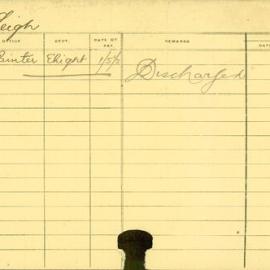 Leigh
OFFICE DEPT. RATE OF PAY. REMARKS DATE
Painter Elight 1/5/- Discharged